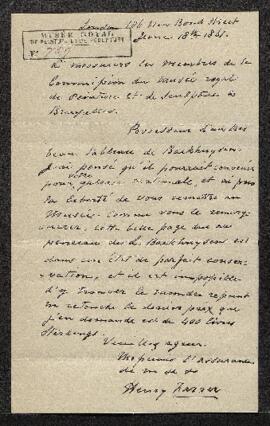 London 166 New Bond Street
June 18th 1861.
MUSÉE ROYAL
DE PEINTURE ET DE SCULPTURE
No
A messieurs les membres de la
Commission du Musée royal
de Peinture et de Sculpture à
Bruxelles.
Possesseur d'un très
beau tableau de Backhuysen
J'ai pensé qu'il pourrait convenir
pour votre galerie nationale, et ai pris
la liberté de vous
Musée. Comme vous le
cette belle page du
pinceau de L. Backhuysen est
dans un état de parfait conser-
vation, et il est impossible
d'y trouver le moindre repeint
ni retouche le dernier prix que
j'en demande est de 400 livres
Sterlings.
Veuillez agréer
Messieurs l'assurance
de m
Henry Farrer